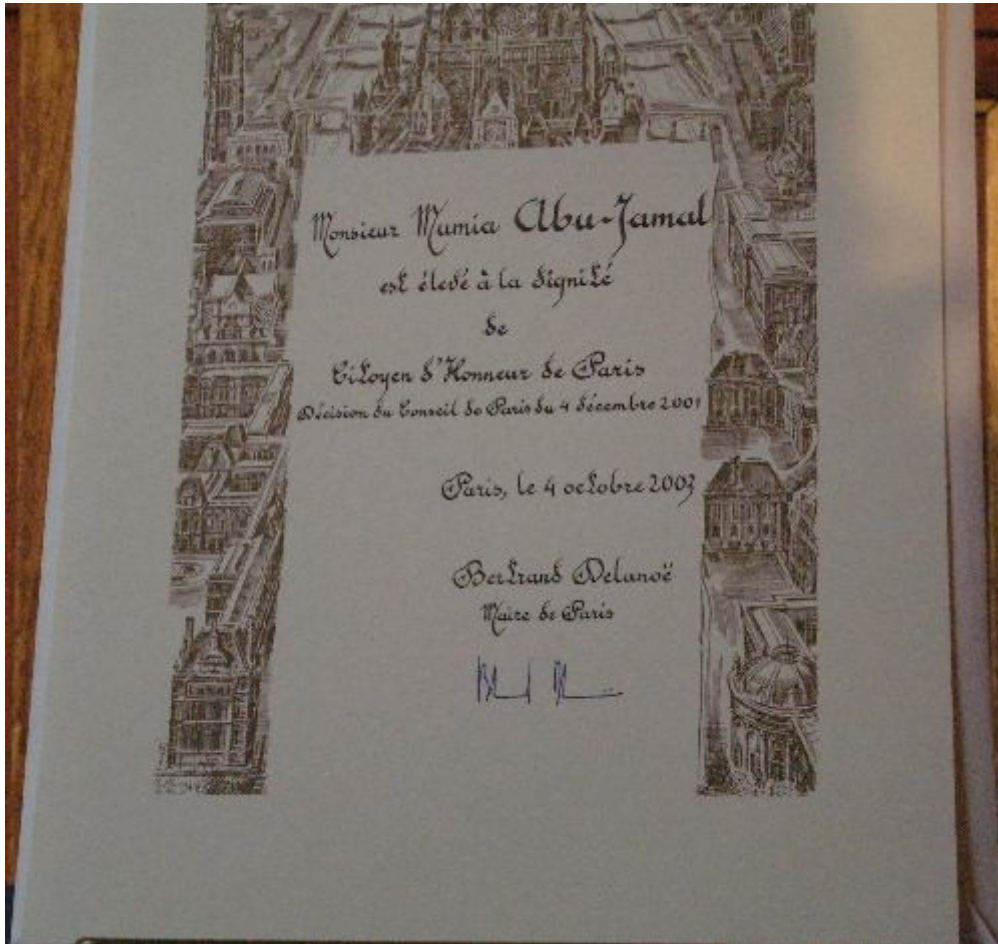 Monsieur Mumia Abu-Jamal
est élevé à la dignité
de
Citoyen d'Honneur de Paris
Décision du Conseil de Paris du 4 décembre 2001
Paris, le 4 octobre 2003
Bertrand Delanoë
Maire de Paris